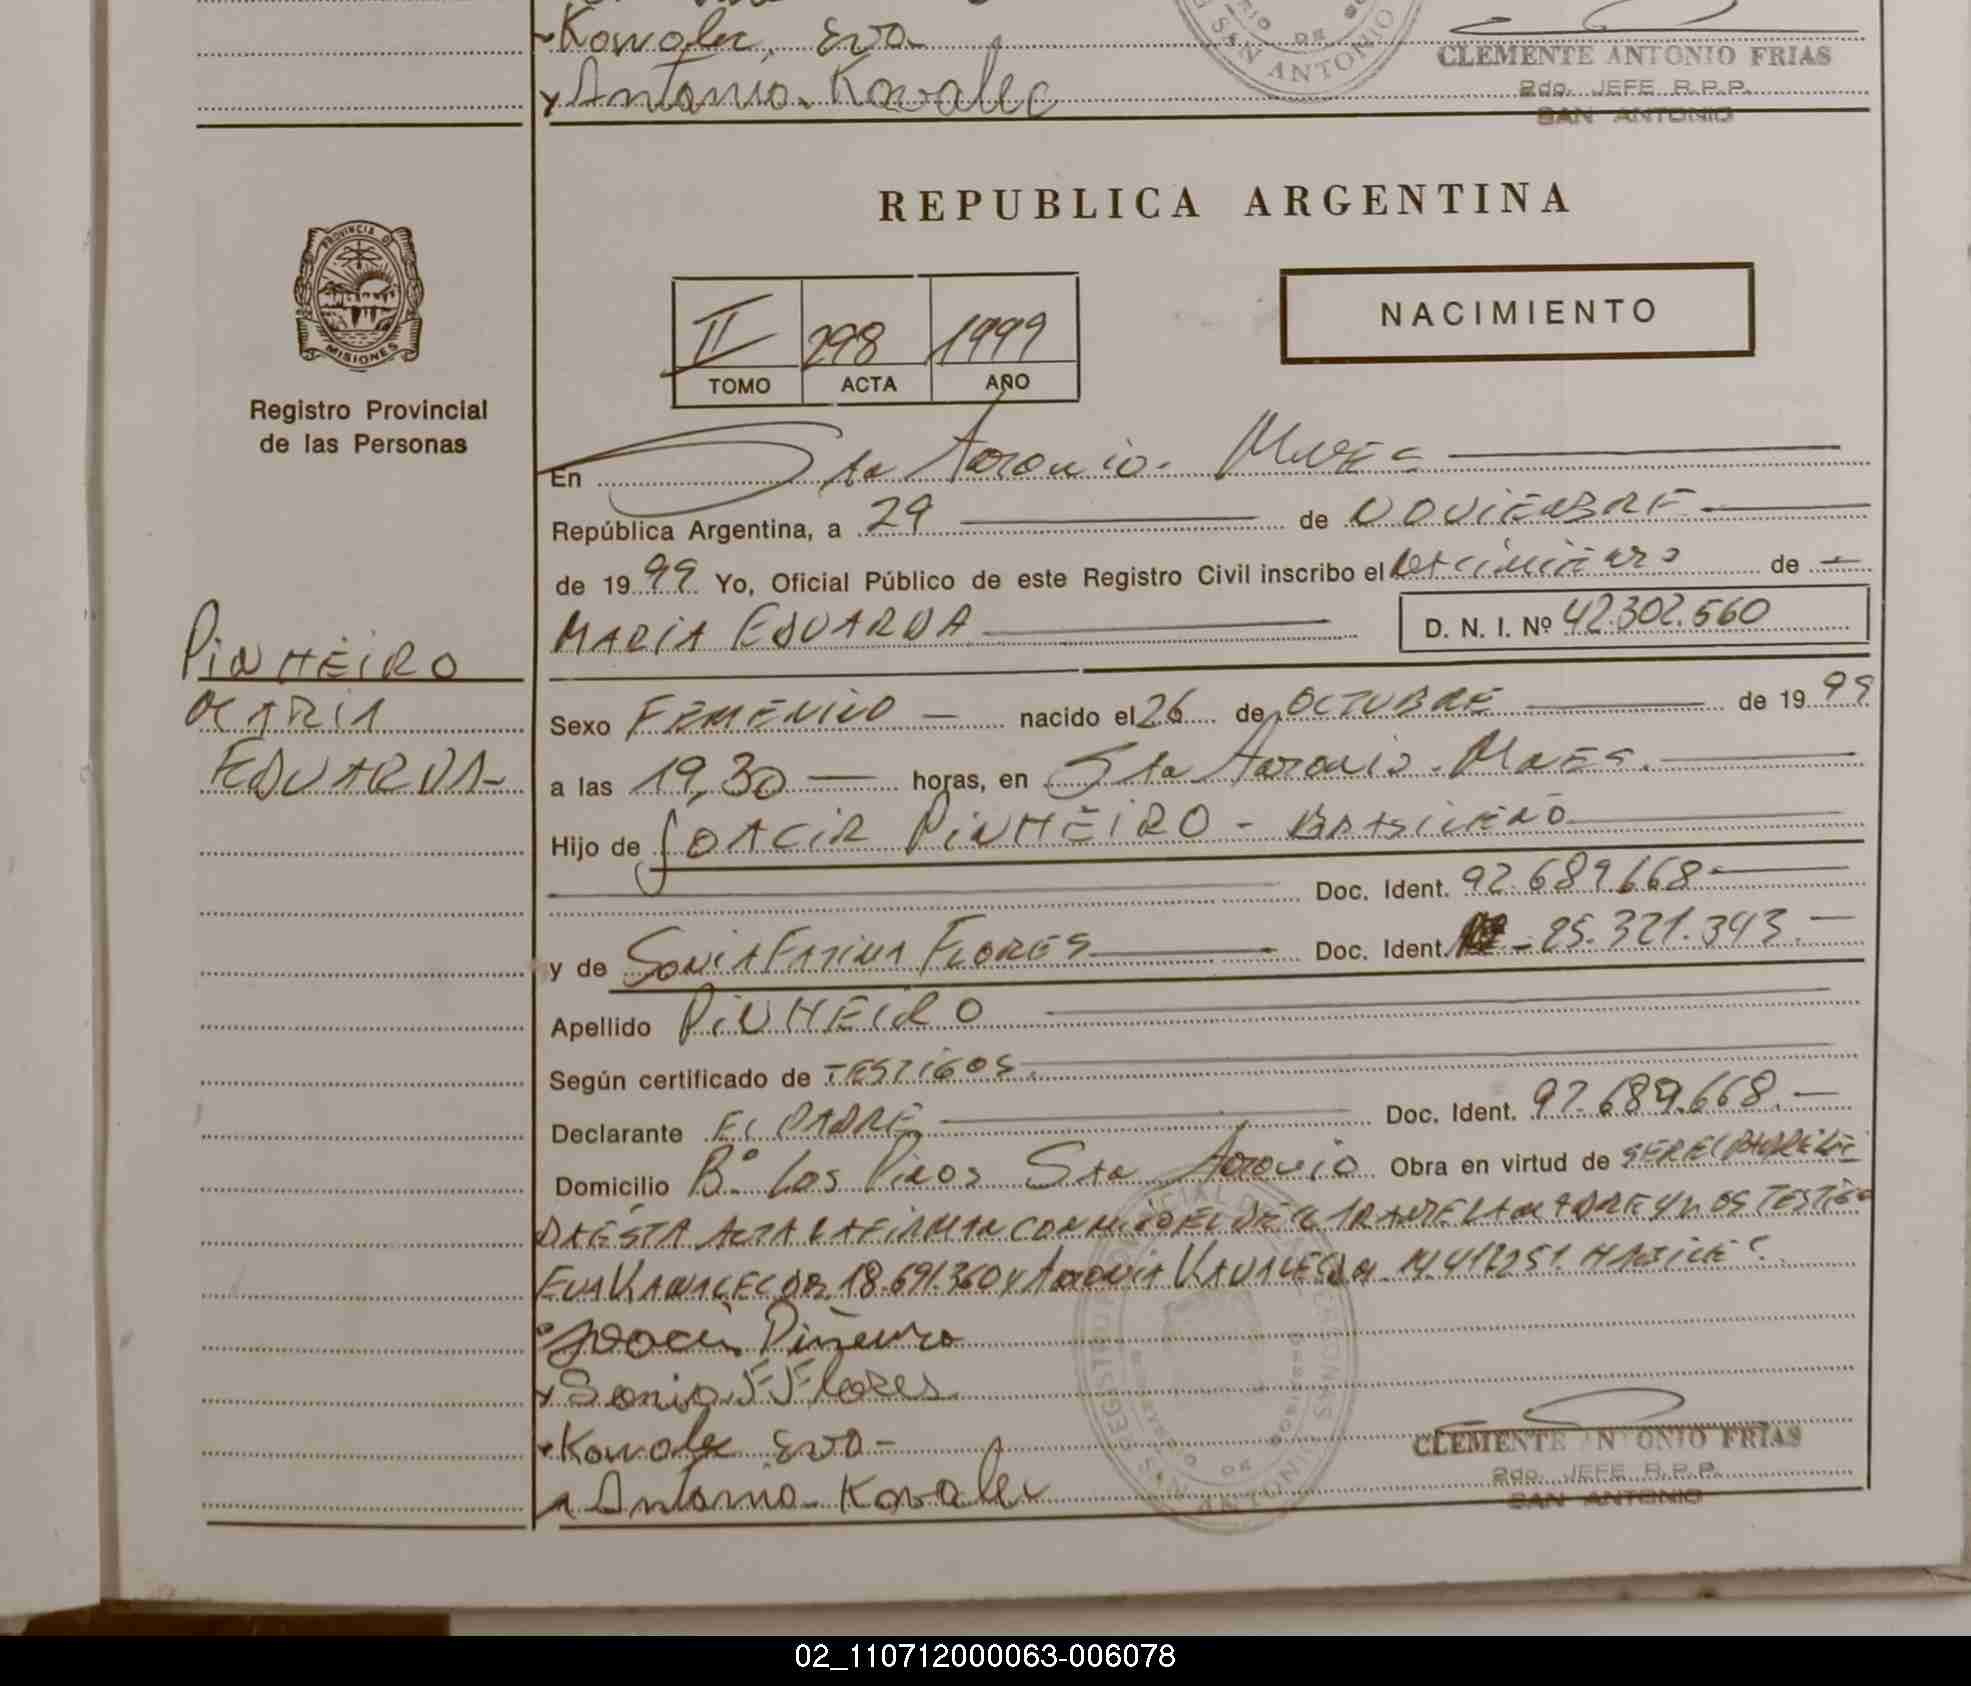 Kowalec, Eva
y Antonio. Kovalec
SAN ANTONIO
CLEMENTE ANTONIO FRIAS
2do. JEFE R.P.P.
SAN ANTONIO
REPUBLICA ARGENTINA
PROVINCIA DE
MISIONES
Registro Provincial
de las Personas
NACIMIENTO
II 298 1999
TOMO ACTA AÑO
En Sta Antonio. Mnes
República Argentina, a 29 de NOVIEMBRE
de 1999 Yo, Oficial Público de este Registro Civil inscribo el nacimiento de
MARIA EDUARDA D. N. I. Nº 42.302.560
PINHEIRO
MARIA
EDUARDA-
Sexo FEMENINO nacido el 26 de OCTUBRE de 1999
a las 19,30 horas, en Sta Antonio. Mnes.
Hijo de JOACIR PINHEIRO - BRASILEÑO
Doc. Ident. 92.689.668
y de SONIA FATIMA FLORES Doc. Ident. 25.321.343.
Apellido PINHEIRO
Según certificado de TESTIGOS.
Declarante EL PADRE Doc. Ident. 92.689.668.
Domicilio Bº Los Pinos Sta Antonio Obra en virtud de SER EL PADRE
ESTA ACTA LA FIRMAN CONMIGO EL DECLARANTE LA MADRE Y LOS TESTIGO
EVA 18.691.360 y
Joacir Piñeiro
y Sonia F. Flores
Kowalec Eva-
Antonio. Kovalec
CLEMENTE ANTONIO FRIAS
2do. JEFE R.P.P.
SAN ANTONIO
02_110712000063-006078